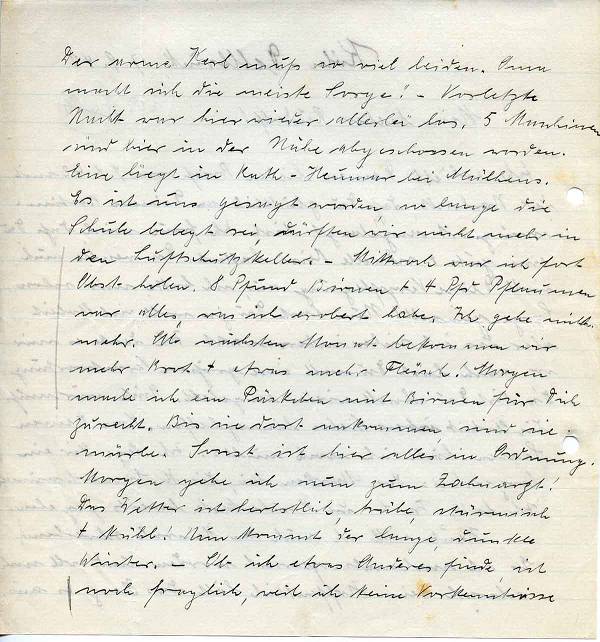 Der arme Kerl muß so viel leiden. Oma
macht sich die meiste Sorge! – Vorletzte
Nacht war hier wieder allerlei los, 5 Maschinen
sind hier in der Nähe abgeschossen worden.
Eine liegt in Rath-Heumar bei Mülhens.
Es ist uns gesagt worden, so lange die
Schule belegt sei, dürften wir nicht mehr in
den Luftschutzkeller. – Mittwoch war ich fort
Obst holen. 8 Pfund Birnen + 4 Pfd Pflaumen
war alles, was ich erobert habe. Ich gehe nicht
mehr. Ab nächsten Monat bekommen wir
mehr Brot + etwas mehr Fleisch! Morgen
mache ich ein Päckchen mit Birnen für Dich
zurecht. Bis sie dort ankommen, sind sie
mürbe. Sonst ist hier alles in Ordnung.
Morgen gehe ich nun zum Zahnarzt!
Das Wetter ist herbstlich, trübe, stürmisch
+ kühl! Nun kommt der lange, dunkle
Winter. – Ob ich etwas Anderes finde, ist
noch fraglich, weil ich keine Vorkenntnisse